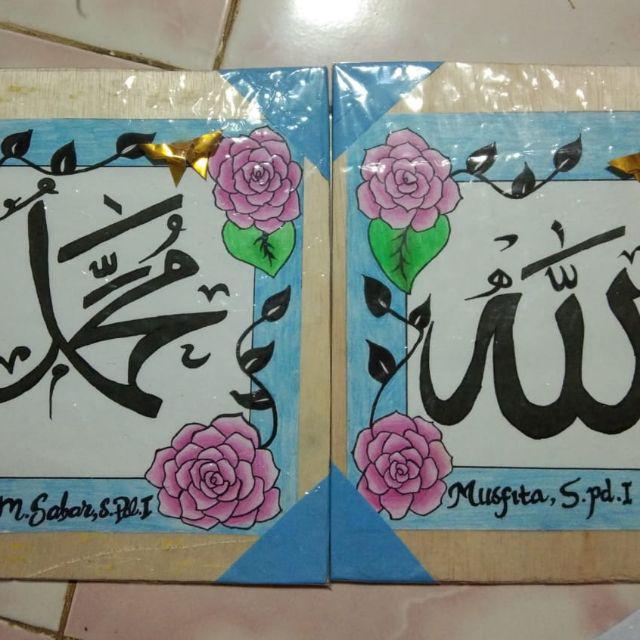 محمد
M. Sabar, S.Pd.I
الله
Musfita, S.pd.I